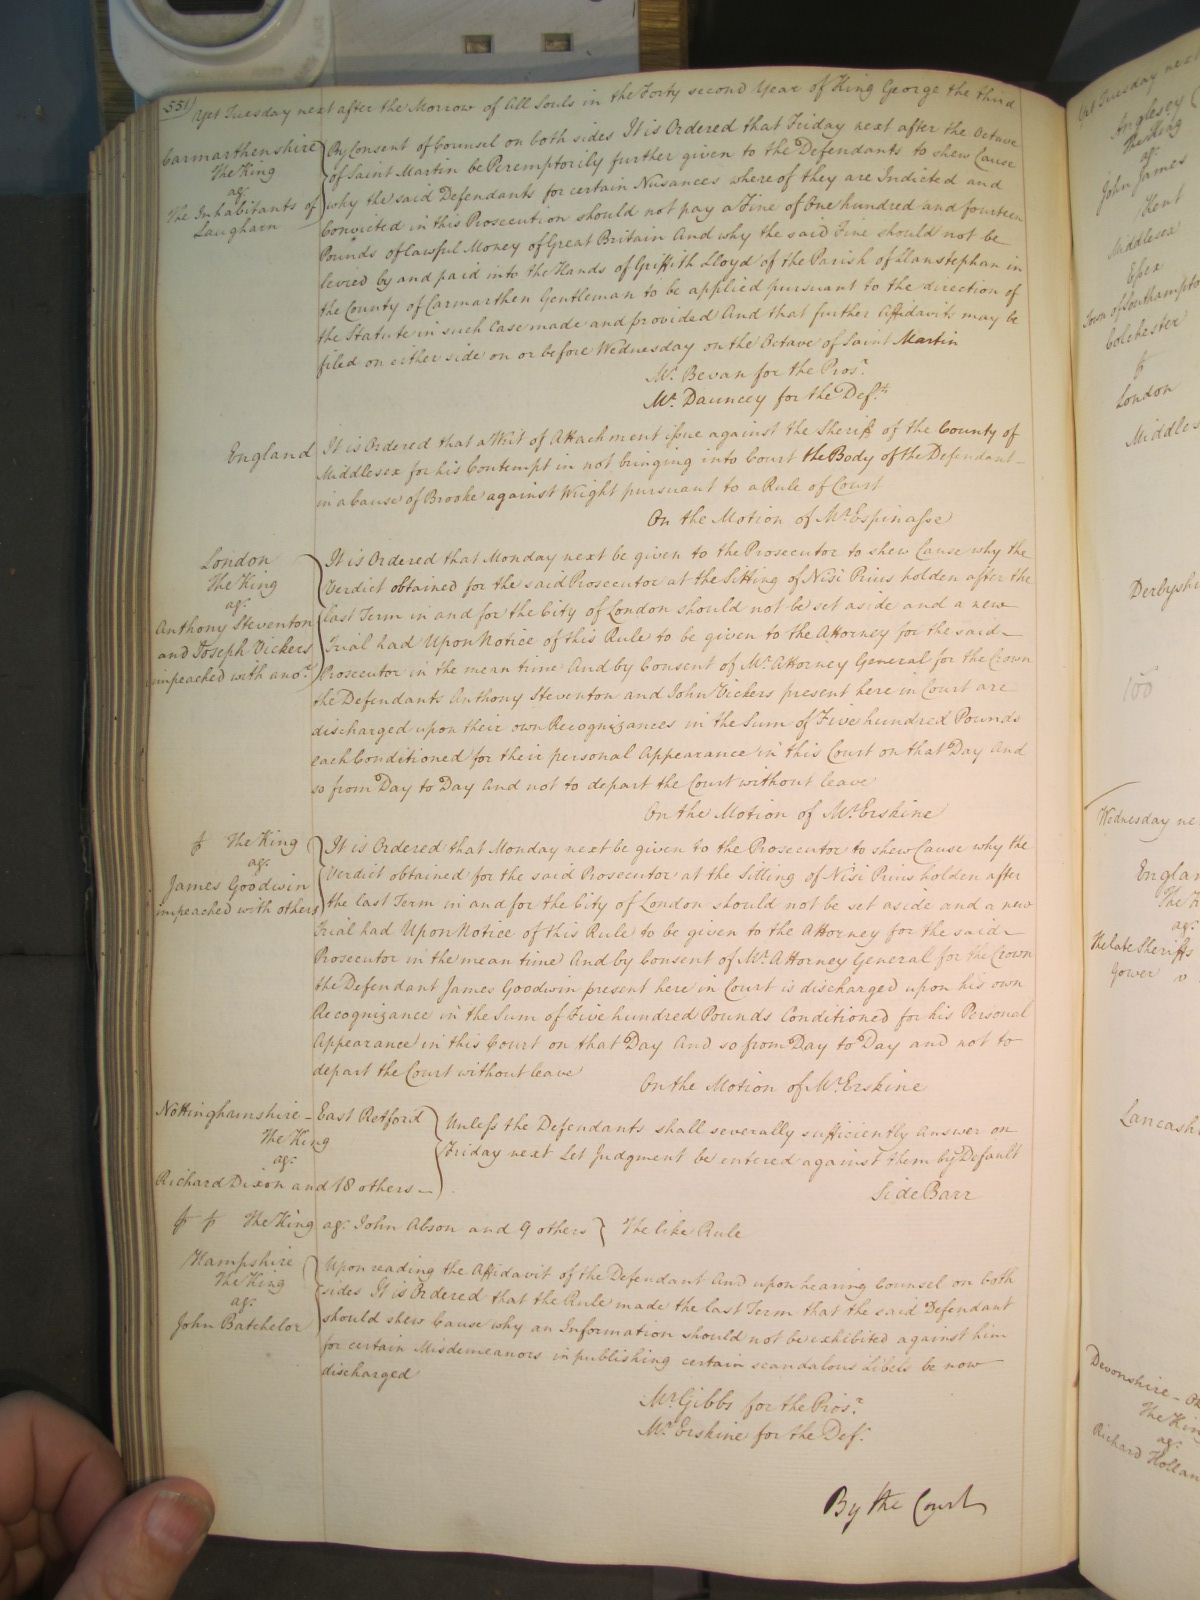 551)
Yet Tuesday next after the Morrow of All Souls in the Forty second Year of King George the third
Carmarthenshire
The King
agt
The Inhabitants of
Laugharn
By Consent of Counsel on both sides It is Ordered that Friday next after the Octave
of Saint Martin be Peremptorily further given to the Defendants to shew Cause
why the said Defendants for certain Nusances where of they are Indicted and
Convicted in this Prosecution should not pay a Fine of One hundred and fourteen
Pounds of lawful Money of Great Britain And why the said Fine should not be
levied by and paid into the Hands of Griffith Lloyd of the Parish of Llanstephan in
the County of Carmarthen Gentleman to be applied pursuant to the direction of
the Statute in such Case made and provided And that further Affidavits may be
filed on either side on or before Wednesday on the Octave of Saint Martin
Mr. Bevan for the Prosr.
Mr. Dauncey for the Defts.
England
It is Ordered that a Writ of Attachment issue against the Sheriff of the County of
Middlesex for his Contempt in not bringing into Court the Body of the Defendant
in a Cause of Brooke against Wright pursuant to a Rule of Court
On the Motion of Mr. Espinasse
London
The King
agt
Anthony Steventon
and Joseph Vickers
impeached with anor.
It is Ordered that Monday next be given to the Prosecutor to shew Cause why the
Verdict obtained for the said Prosecutor at the Sitting of Nisi Prius holden after the
last Term in and for the City of London should not be set aside and a new
Trial had Upon Notice of this Rule to be given to the Attorney for the said
Prosecutor in the mean time And by Consent of Mr. Attorney General for the Crown
the Defendants Anthony Steventon and John Vickers present here in Court are
discharged upon their own Recognizances in the Sum of Five hundred Pounds
each Conditioned for their personal Appearance in this Court on that Day And
so from Day to Day And not to depart the Court without leave
On the Motion of Mr. Erskine
The King
agt
James Goodwin
impeached with others
It is Ordered that Monday next be given to the Prosecutor to shew Cause why the
Verdict obtained for the said Prosecutor at the Sitting of Nisi Prius holden after
the last Term in and for the City of London should not be set aside and a new
Trial had Upon Notice of this Rule to be given to the Attorney for the said
Prosecutor in the mean time And by Consent of Mr. Attorney General for the Crown
the Defendant James Goodwin present here in Court is discharged upon his own
Recognizance in the Sum of Five hundred Pounds Conditioned for his Personal
Appearance in this Court on that Day And so from Day to Day and not to
depart the Court without leave
On the Motion of Mr. Erskine
Nottinghamshire - East Retford
The King
agt
Richard Dixon and 18 others
Unless the Defendants shall severally sufficiently answer on
Friday next Let Judgment be entered against them by Default
Side Barr
The King agt John Abson and 9 others } The like Rule
Hampshire
The King
agt
John Batchelor
Upon reading the Affidavit of the Defendant And upon hearing Counsel on both
sides It is Ordered that the Rule made the last Term that the said Defendant
should shew Cause why an Information should not be exhibited against him
for certain Misdemeanors in publishing certain scandalous Libels be now
discharged
Mr. Gibbs for the Prosr.
Mr. Erskine for the Deft.
By the Court
Yet Tuesday next
Anglesey
The King
agt
John James
Kent
Middlesex
Essex
Town of Southampto
Colchester
London
Middles
Derbyshi
100
Wednesday ne
Englan
The K
agt
The late Sheriffs
Gower v
Lancash
Devonshire
The King
agt
Richard Hollan